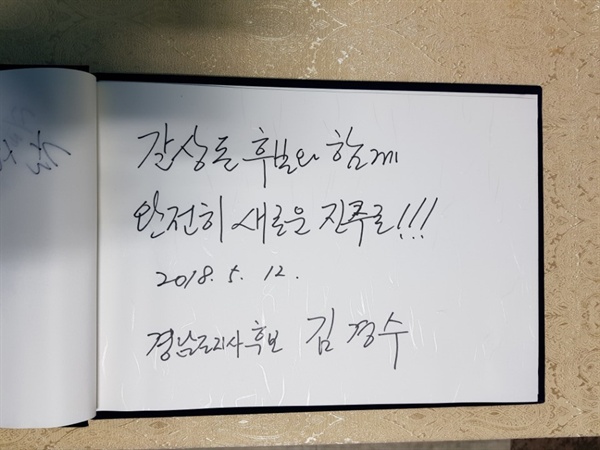 갈상돈 후보와 함께
완전히 새로운 진주로!!!
2018. 5. 12.
경남도지사후보 김경수